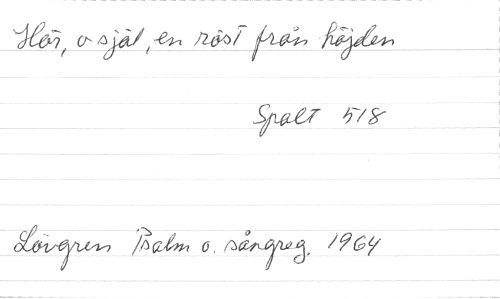 Hör, o själ, en röst från höjden
Spalt 518
Lövgren Psalm o. sångreg. 1964